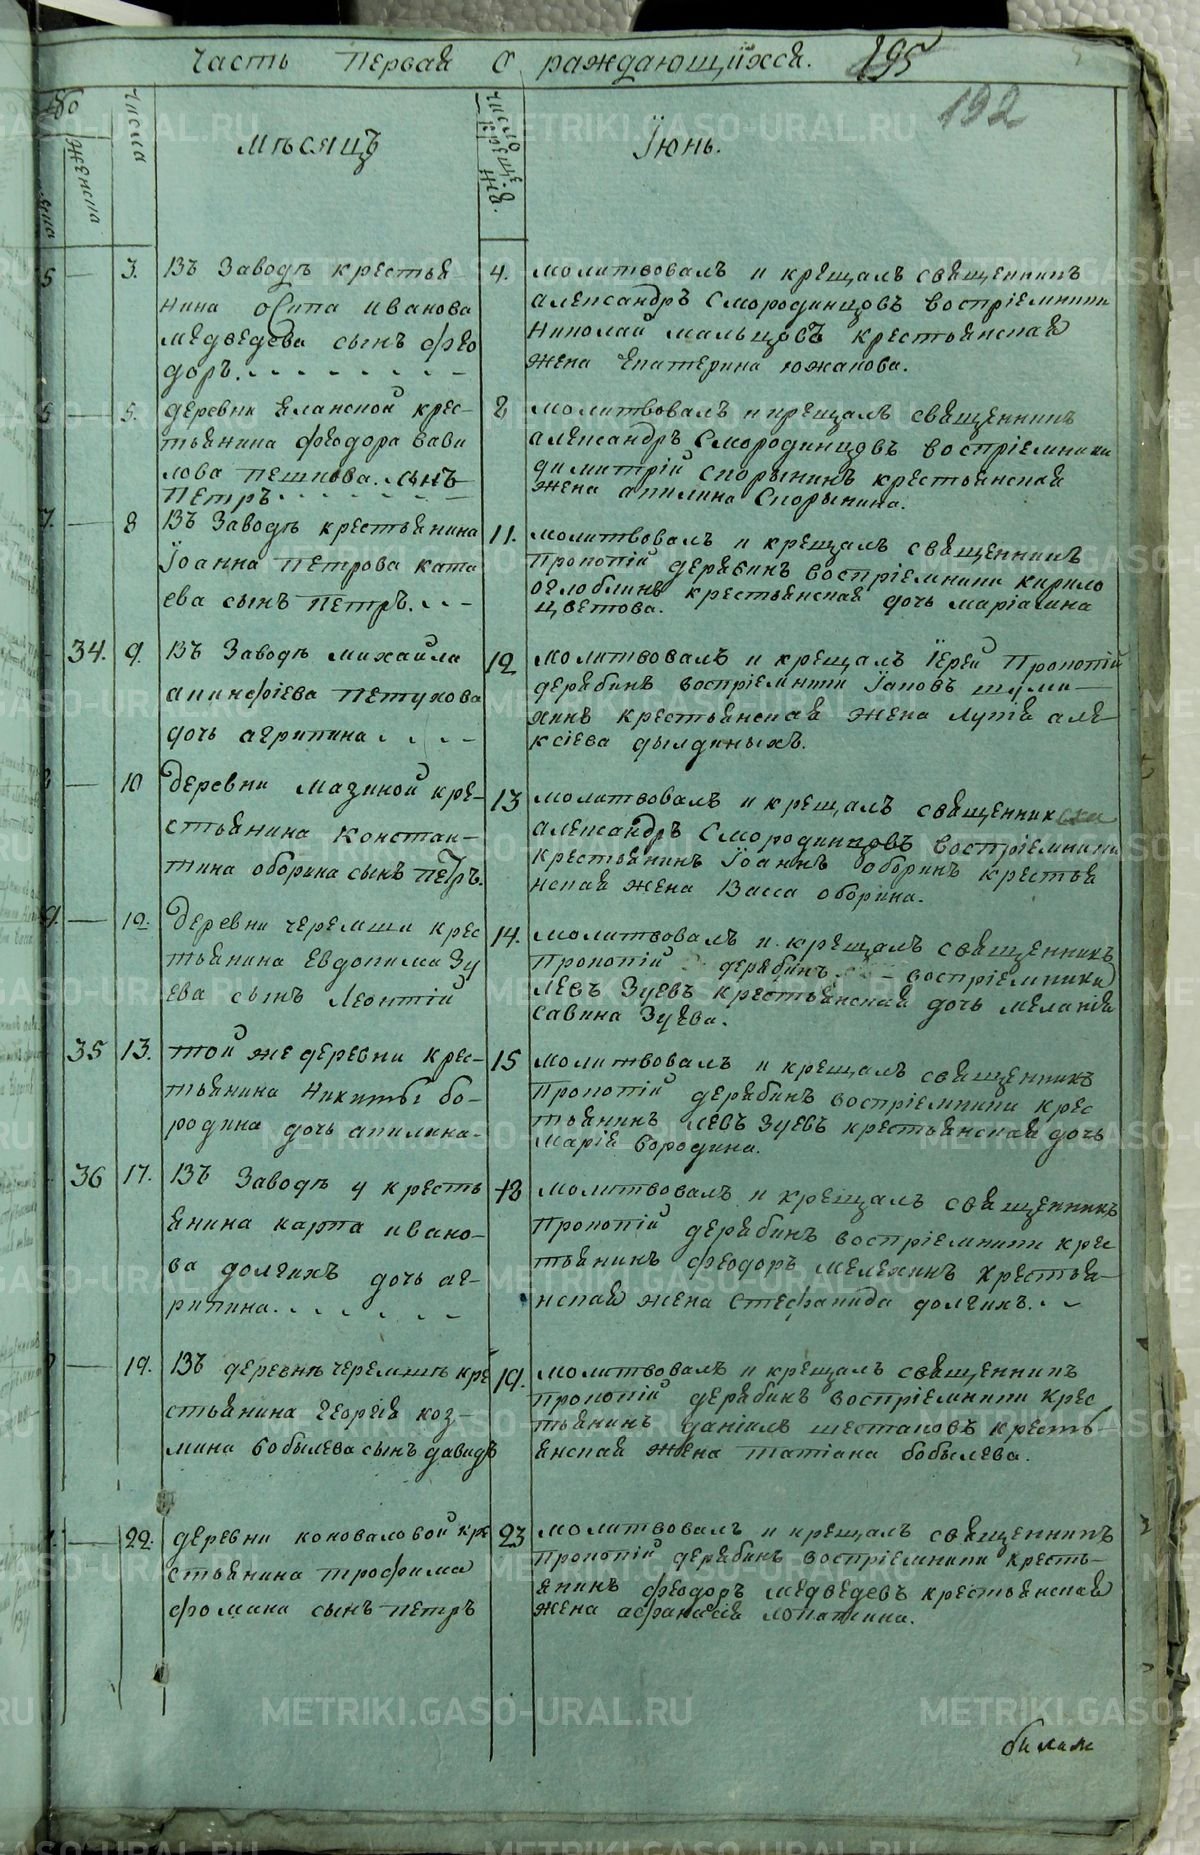 Часть первая о раждающихся. 195
192
Месяцъ
Женска
числа
Число крещенія
Июнь.
3. Въ Заводѣ крестья-
нина Осипа Иванова
Медведева сынъ Фео-
доръ.
4. молитвовалъ и крещалъ священникъ
александръ Смородинцовъ воспріемники
Николай мальцовъ крестьянская
жена Екатерина южакова.
5. деревни Еланской крес-
тьянина Феодора Вави
лова пешкова. сынъ
Петръ.
8 молитвовалъ и крещалъ священникъ
александръ Смородинцовъ воспріемники
димитрій спорынинъ крестьянская
жена апилина Спорынина.
8 Въ Заводѣ крестьянина
Їоанна петрова ката
ева сынъ петръ.
11. молитвовалъ и крещалъ священникъ
Прокопій дерябинъ воспріемники кирило
оглоблинъ крестьянская дочь маріамна
цветова.
34. 9. Въ Заводѣ михайла
апинфіева петухова
дочь агрипина
12 молитвовалъ и крещалъ Їерей Прокопій
дерябинъ воспріемники Їаковъ шуми-
хинъ крестьянская жена лукія але-
ксіева дылдиныхъ.
10 деревни мазиной кре-
стьянина констан-
тина оборина сынъ петръ.
13 молитвовалъ и крещалъ священник
александръ Смородинцовъ воспріемники
крестьянинъ Їоаннъ оборинъ крестья
нская жена Васса оборина.
12 деревни черемши крес
тьянина Евдокима Зу
ева сынъ Леонтій
14. молитвовалъ и крещалъ священникъ
Прокопій дерябинъ воспріемники
Левъ Зуевъ крестьянская дочь меланія
савина Зуева.
35 13. той же деревни крес-
тьянина Никиты бо-
родина дочь апилина.
15 молитвовалъ и крещалъ священникъ
Прокопій дерябинъ воспріемники крес
тьянинъ левъ Зуевъ крестьянская дочь
марія бородина.
36 17. Въ Заводѣ у кресть
янина карпа ивано-
ва долгихъ дочь аг-
рипина.
18 молитвовалъ и крещалъ священникъ
Прокопій дерябинъ воспріемники крес
тьянинъ феодоръ мелехинъ крестья-
нская жена стефанида долгихъ.
19. Въ деревнѣ черемшѣ кре
стьянина Георгія коз-
мина бобылева сынъ давидъ
19. молитвовалъ и крещалъ священникъ
прокопій дерябинъ воспріемники крес
тьянинъ даніилъ шестаковъ кресть-
янская жена татіана бобылева.
22. деревни коноваловой кре
стьянина трофима
фомина сынъ петръ
23 молитвовалъ и крещалъ священникъ
прокопій дерябинъ воспріемники кресть-
янинъ феодоръ медведевъ крестьянская
жена афанасія лопаткина.
METRIKI.GASO-URAL.RU